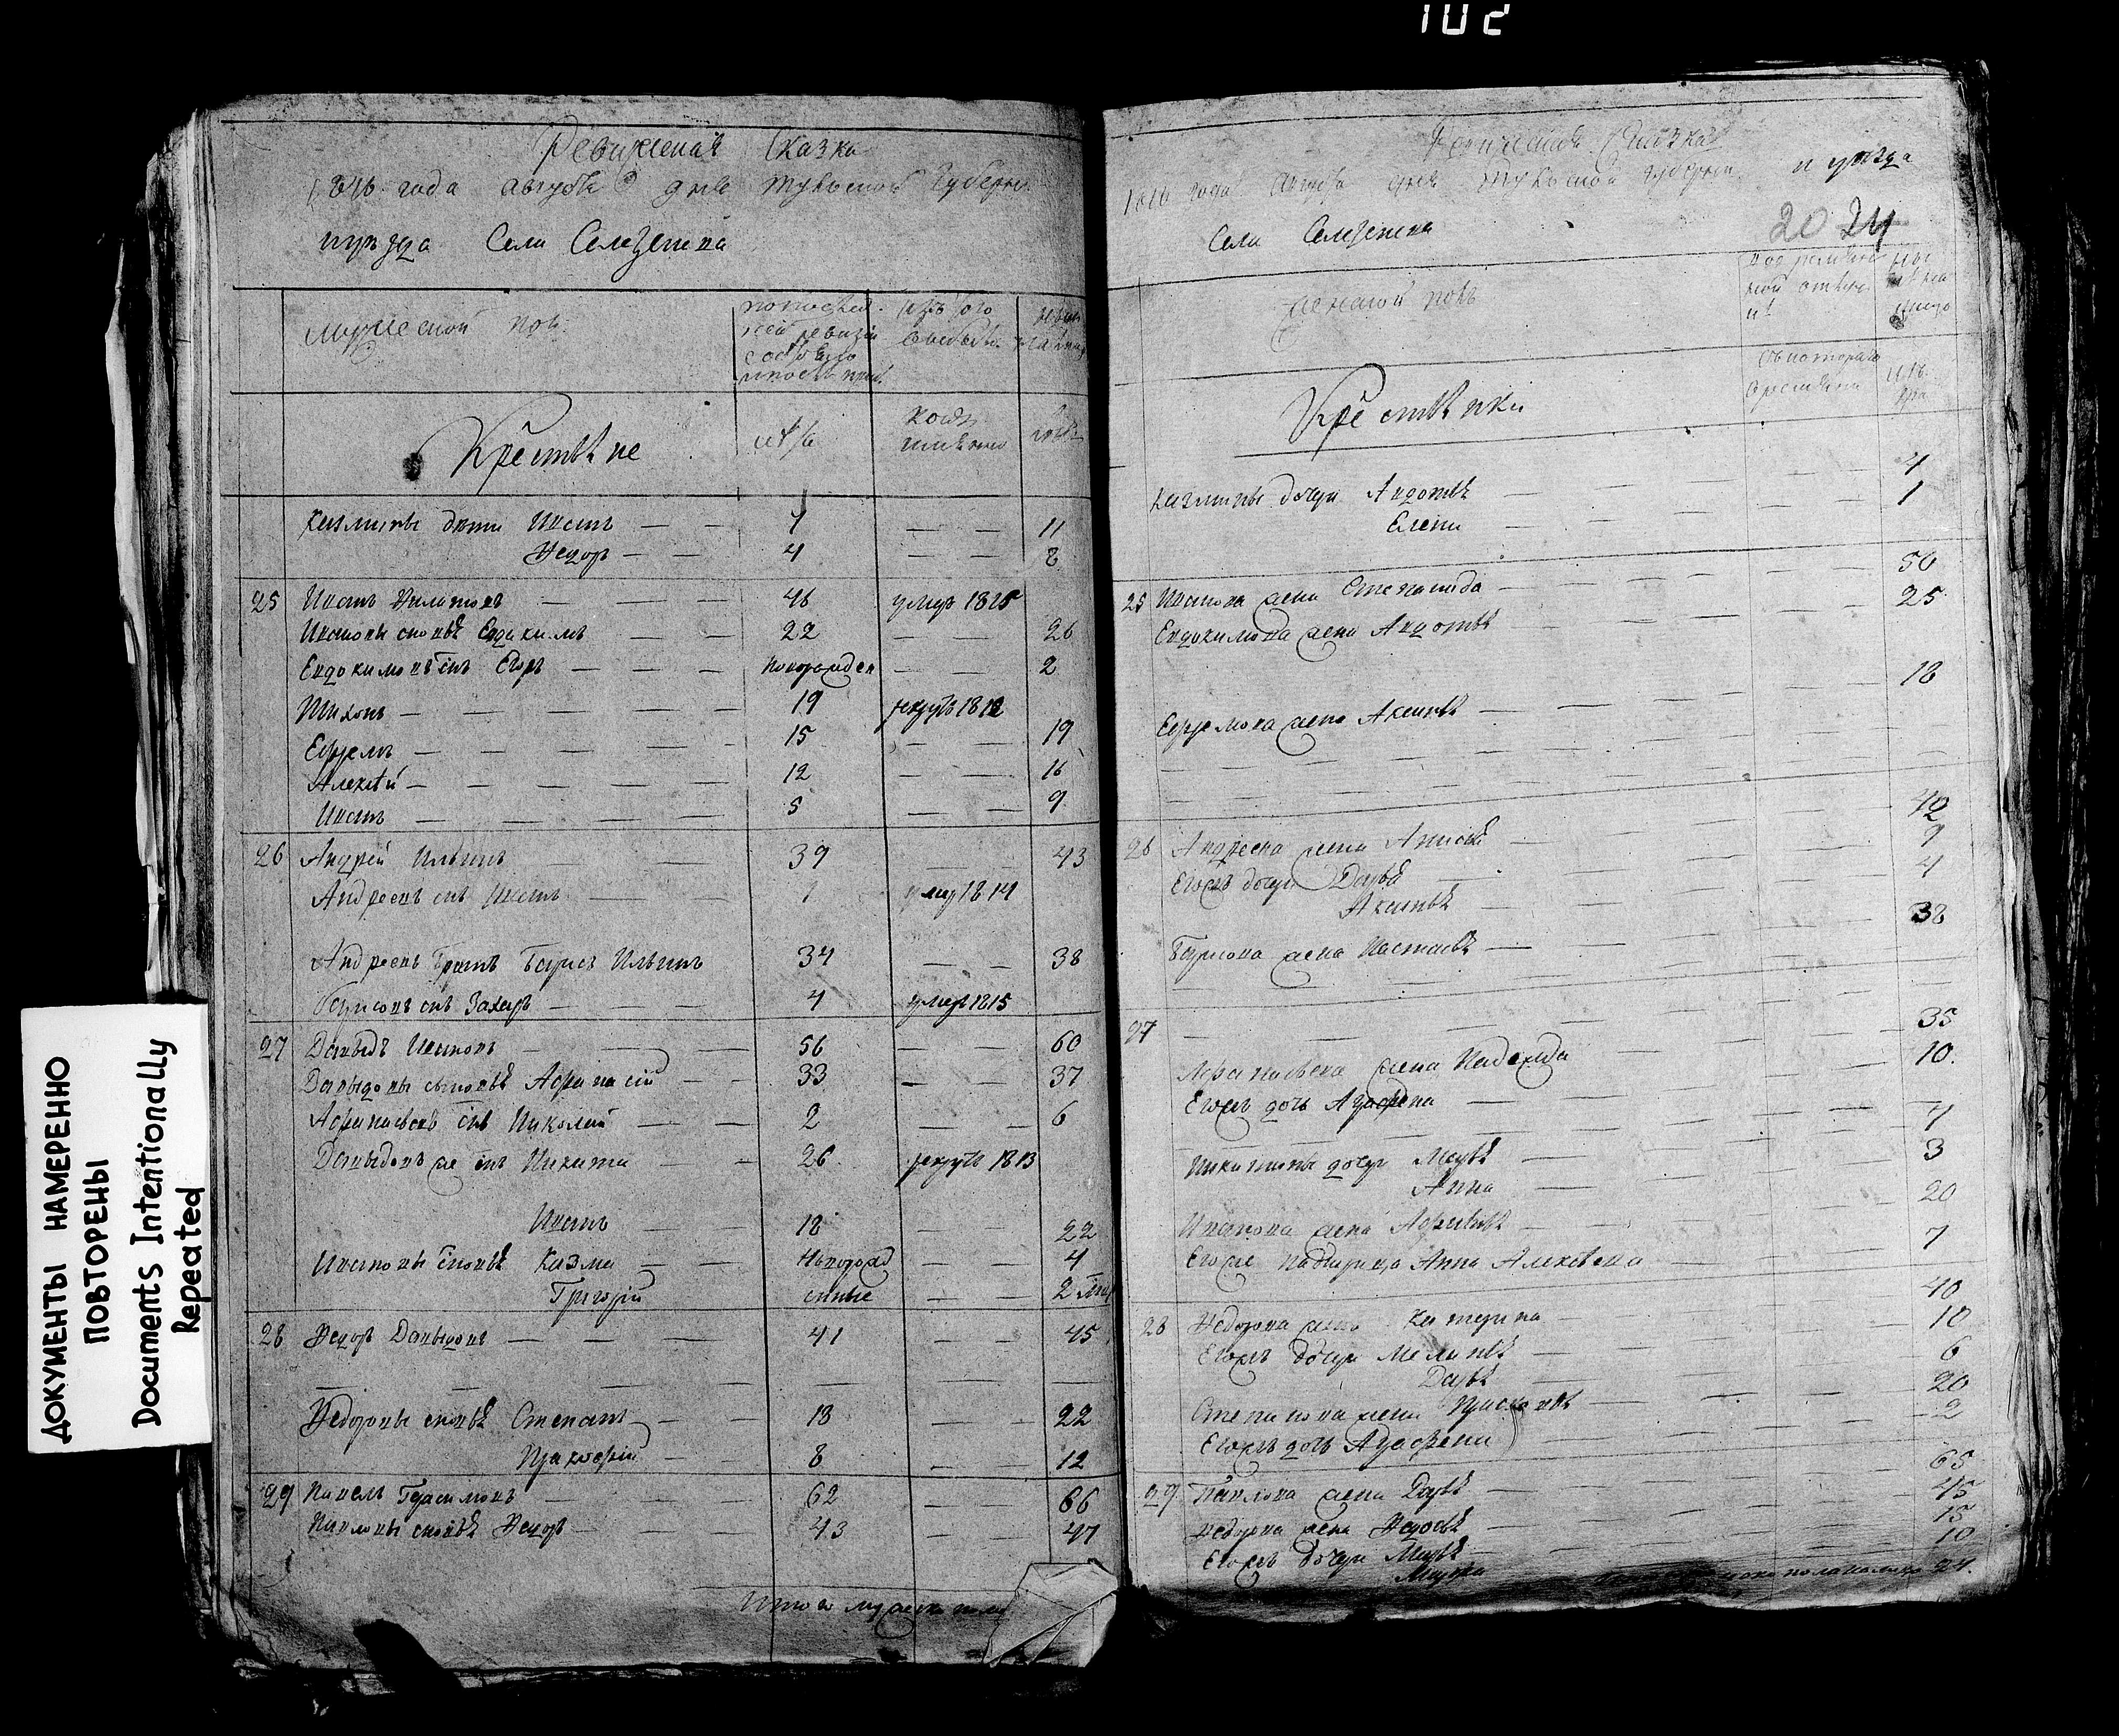 102
Ревижская Сказка
1816 года августа дня Тульской Губернии
и уезда Села Селезнева
мужеской полъ
по последней ревизии состояло
изъ того выбыло
Крестьяне
лѣта
когда имянно
Казмины дѣти Иванъ — — 7 — — 11
Ѳедоръ — — 4 — — 8
25 Иванъ Филатовъ — — — 46 умер 1815
Ивановы сыновья Евдокимъ — — 22 — — 26
Евдокимовъ снъ Егоръ — — — новорожден — 2
Тихонъ — — — — — 19 рекрутъ 1812
Ефремъ — — — — — 15 — — 19
Алексѣй — — — — — 12 — — 16
Иванъ — — — — 5 — — 9
26 Андрей Ильинъ — — 39 — — 43
Андреевъ снъ Иванъ — — умер 1814
Андреевъ братъ Барисъ Ильинъ 34 — — 38
Барисовъ снъ Захаръ — — 4 умеръ 1815
27 Давыдъ Ивановъ — — — 56 — — 60
Давыдовы сыновья Афанасий — — 33 — — 37
Афанасьевъ снъ Николай — — — 2 — — 6
Давыдовъ же снъ Никита — — 26 рекрутъ 1813
Иванъ — — 18 — — 22
Ивановы сновья Казма — — новорожд — — 4
Григорий енные — — 2
28 Ѳедоръ Давыдовъ — — — — 41 — — 45
Ѳедоровы сновья Степанъ — — 18 — — 22
Пракофий — 8 — — 12
29 Павелъ Герасимовъ — — — 62 — — 66
Павловы сновья Ѳедоръ — — — 43 — — 47
Итого мужеска пола
1816 года Августа дня Тульской губернии и уезда
Села Селезнева
20 24
женской полъ
съ котораго времяни
Крестьянки
Казмины дочери Авдотья — 4
Елена — 1
25 Иванова жена Степанида — 50
Евдокимова жена Авдотья — 25
Ефремова жена Аксинья — 18
26 Андреева жена Анисья — 42
Егожъ дочери Дарья — 9
Аксинья — 4
Барисова жена Настасья — 38
27
Афанасьева жена Надежда 35
Егожъ дочь Аграфена — 10.
Никитины дочери Марья — 7
Анна — 3
Иванова жена Афимья — 20
Егоже падчерица Анна Алексѣева — 7
28 Ѳедорова жена Катерина — 40
Егожъ дочери Меланья — 10
Дарья — 6
Степанова жена Прасковья — 20
Егожъ дочь Аграфена 2
29 Павлова жена Дарья — 65
Ѳедорова жена Ѳедосья — 45
Егожъ дочери Марья — 15
Марфа 10
женска пола налицо 24.
ДОКУМЕНТЫ НАМЕРЕННО
ПОВТОРЕНЫ
Documents Intentionally
Repeated